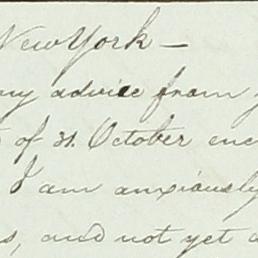 New York —
my advice from
of 31. October enc
I am anxiously
s, and not yet a